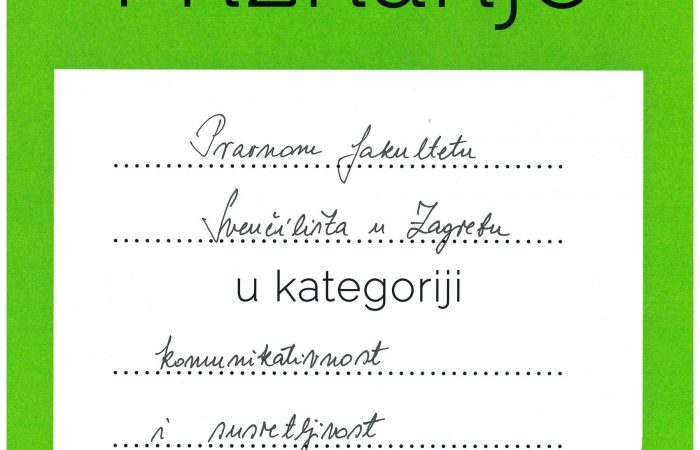 Priznanje
Pravnom fakultetu
Sveučilišta u Zagrebu
u kategoriji
komunikativnost
i susretljivost